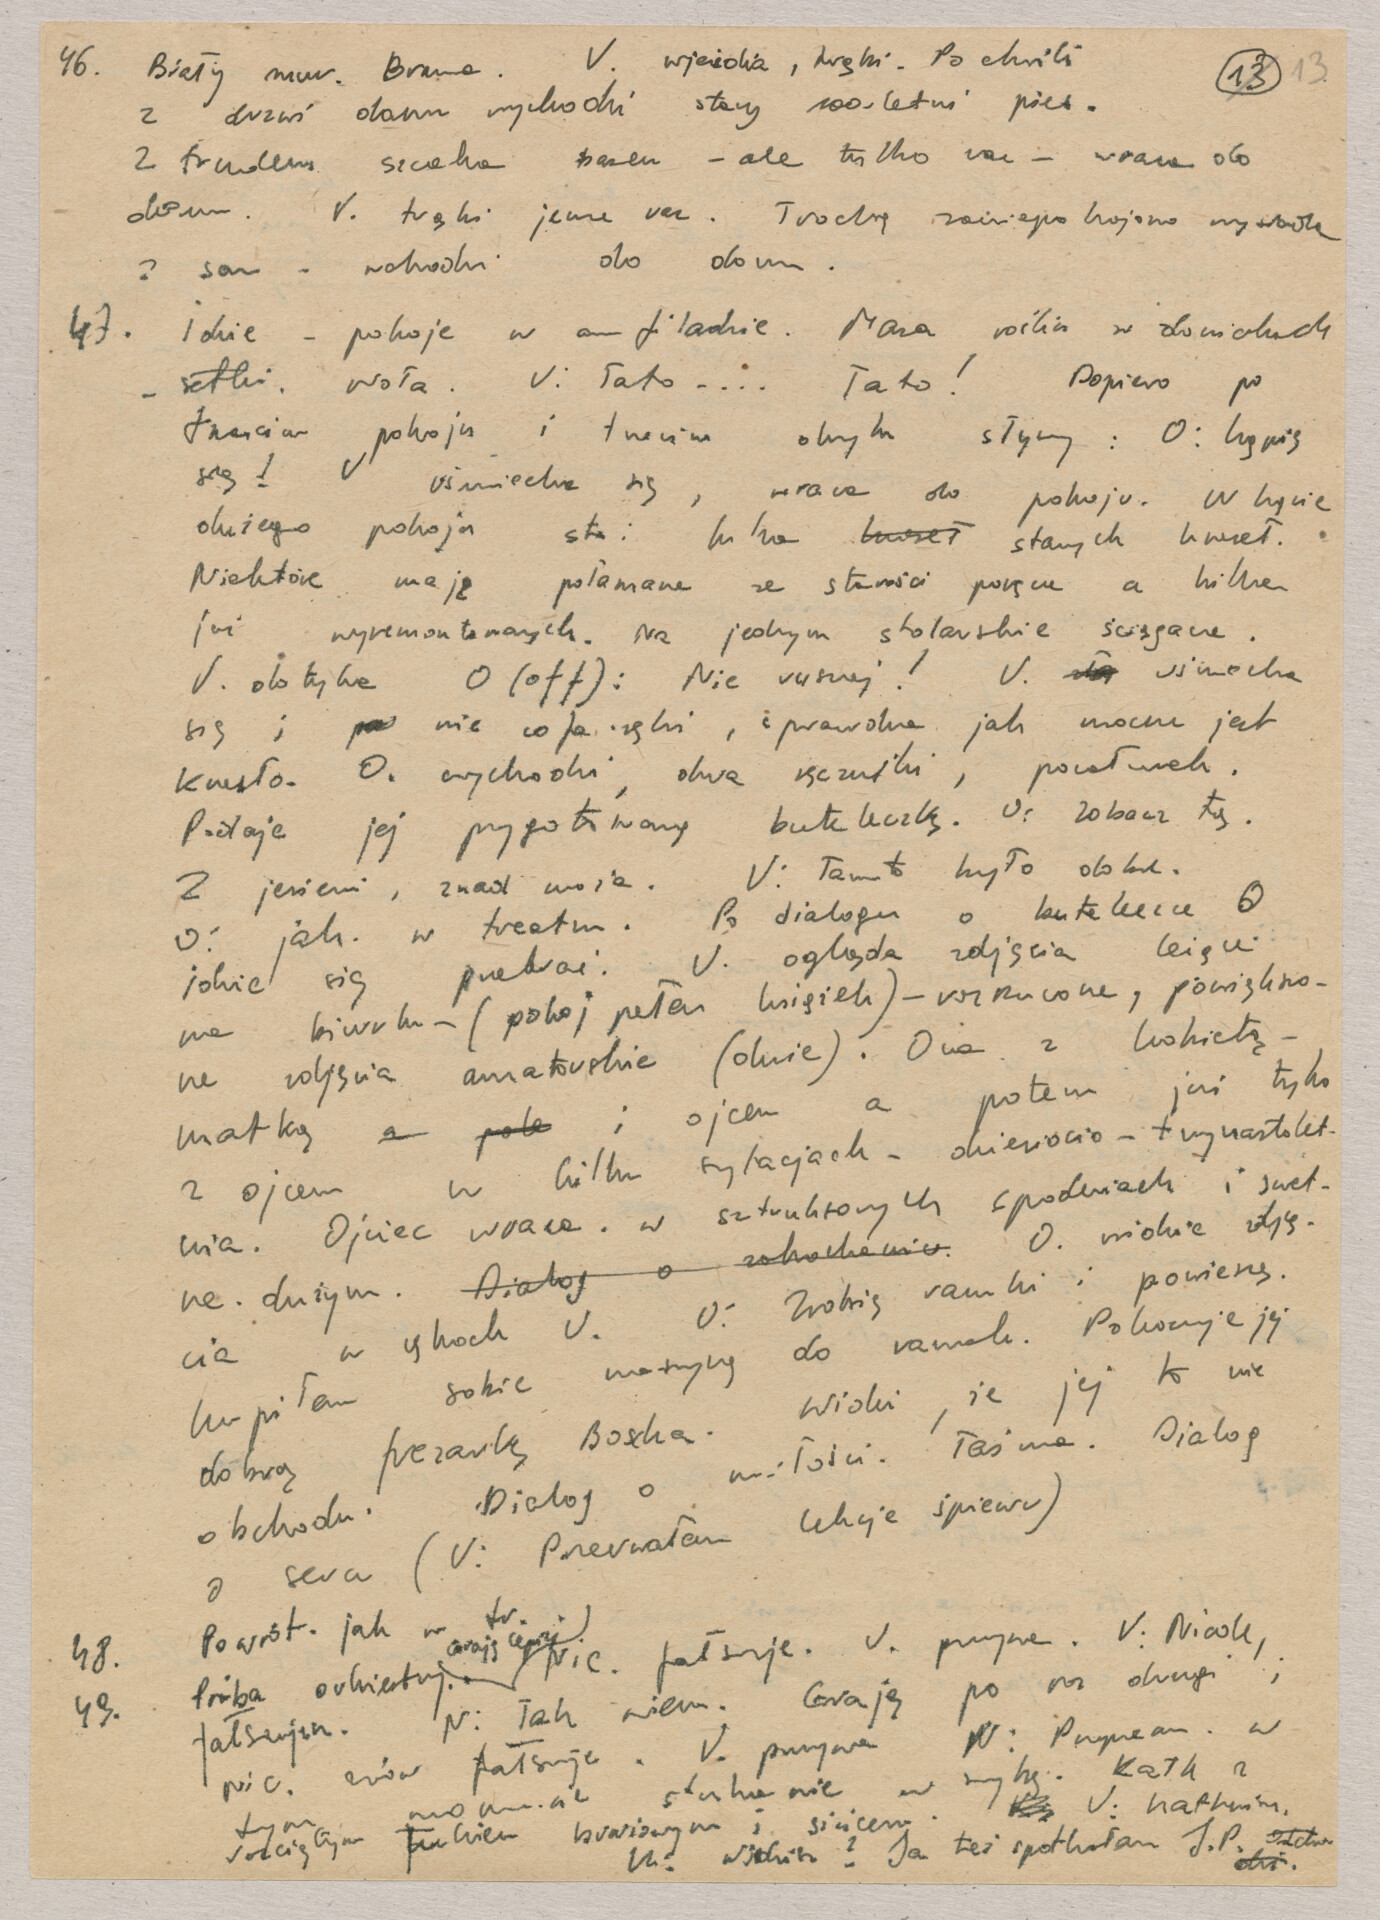 46. Biały mur. Brama. V. wjeżdża, trąbi. Po chwili 13 13
z drzwi domu wychodzi stary 100-letni pies.
Z trudem szczeka razem - ale tylko raz - wraca do
domu. V. trąbi jeszcze raz. Trochę zaniepokojona wysiada
z sam - wchodzi do domu.
47. Idzie - pokoje w amfiladzie. Masa roślin w doniczkach
- setki. Woła. V: Tato .... Tato! Dopiero po
trzecim pokoju i trzecim okrzyku słyszy: O: kąpię
się! V uśmiecha się, wraca do pokoju. W kącie
dużego pokoju stoi kilka krzeseł starych krzeseł.
Niektóre mają połamane ze starości poręcze a kilka
już wyremontowanych. Na jednym stolarskie ściągacze.
V. dotyka O (off): Nie ruszaj! V. uśmiecha
się i nie cofa ręki, sprawdza jak mocne jest
krzesło. O. wychodzi, dwa ręczniki, pocałunek.
Podaje jej przygotowaną buteleczkę. O: zobacz tę.
Z jesieni, znad morza. V: Tamto było dobre.
O: jak. w treatm. Po dialogu o buteleczce O
idzie się przebrać. V. ogląda zdjęcia leżące
na biurku - (pokój pełen książek) - rozrzucone, powiększo-
ne zdjęcia amatorskie (duże). Ona z kobietą -
matką a pote i ojcem a potem już tylko
z ojcem w kilku sytuacjach - dziesięcio - trzynastolet-
nia. Ojciec wraca. w sztruksowych spodniach i swet-
rze. dużym. Dialog o zakochaniu. O. widzie zdję-
cia w rękach V. O: Zrobię ramki i powieszę.
Kupiłem sobie maszynę do ramek. Pokazuje jej
dobrą frezarkę Boscha. Widzi, że jej to nie
obchodzi. Dialog o miłości. Taśma. Dialog
o sercu (V: Przerwałam lekcje śpiewu)
48. Powrót. jak w tr.
49. Próba orkiestry. (Grają ciężej) Nic. fałszuje. V. przerywa. V: Nicole,
fałszujesz. N: Tak wiem. Grają po raz drugi i
Nic. znów fałszuje. V. przerywa N: Przepraszam. w
tym momencie stukanie w szybę. Kath z
rozciętym łukiem brwiowym i sińcem. V: Kathrin.
K: widzisz? Ja też spotkałam J.P.